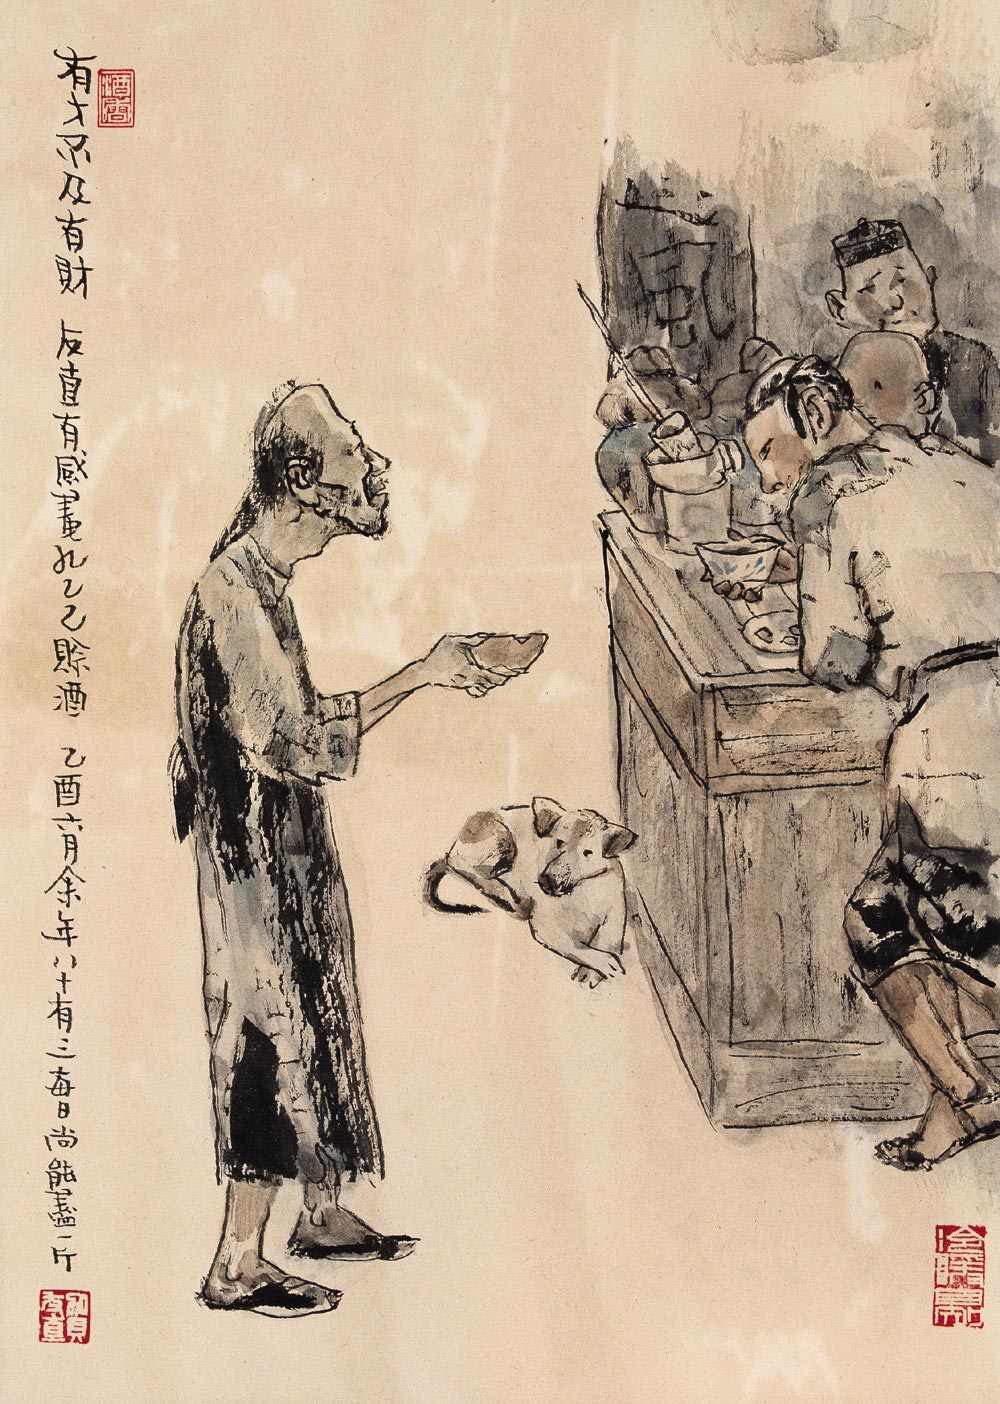 有才不及有財 友直有感畫孔乙己賒酒 乙酉六月余年八十有三每日尚能盡一斤
酒香
賀友直
風